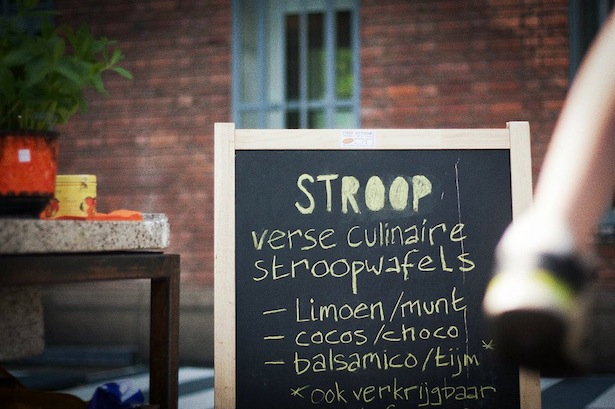 STROOP
verse culinaire
stroopwafels
– Limoen/munt
– cocos/choco
– balsamico/tijm *
* ook verkrijgbaar